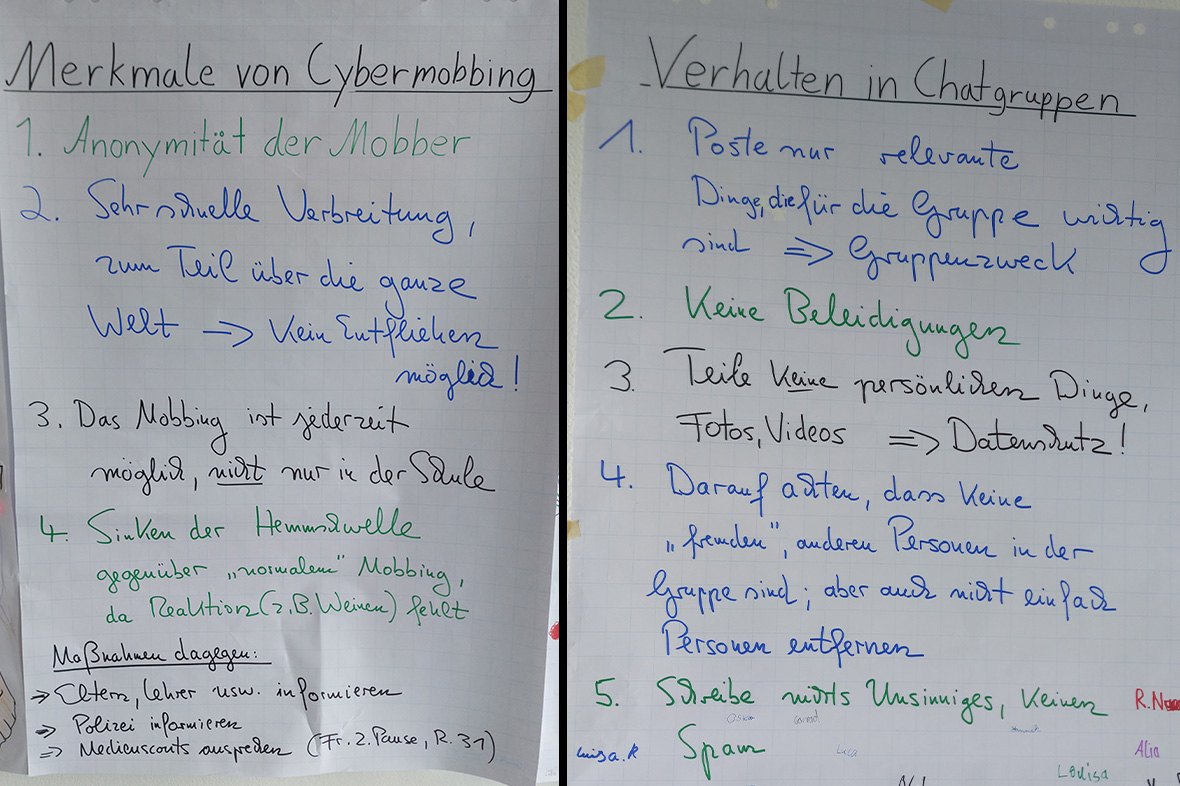 Merkmale von Cybermobbing
1. Anonymität der Mobber
2. Sehr schnelle Verbreitung,
zum Teil über die ganze
Welt => Kein Entfliehen
möglich!
3. Das Mobbing ist jederzeit
möglich, nicht nur in der Schule
4. Sinken der Hemmschwelle
gegenüber „normalem" Mobbing,
da Reaktion (z.B. Weinen) fehlt
Maßnahmen dagegen:
=> Eltern, Lehrer usw. informieren
=> Polizei informieren
=> Medienscouts ansprechen (Fr. 2. Pause, R. 31)
Verhalten in Chatgruppen
1. Poste nur relevante
Dinge, die für die Gruppe wichtig
sind => Gruppenzweck
2. Keine Beleidigungen
3. Teile keine persönlichen Dinge,
Fotos, Videos => Datenschutz!
4. Darauf achten, dass keine
„fremden", anderen Personen in der
Gruppe sind; aber auch nicht einfach
Personen entfernen
5. Schreibe nichts Unsinniges, keinen
Spam
Luisa.R
Luca
Alia
Louisa